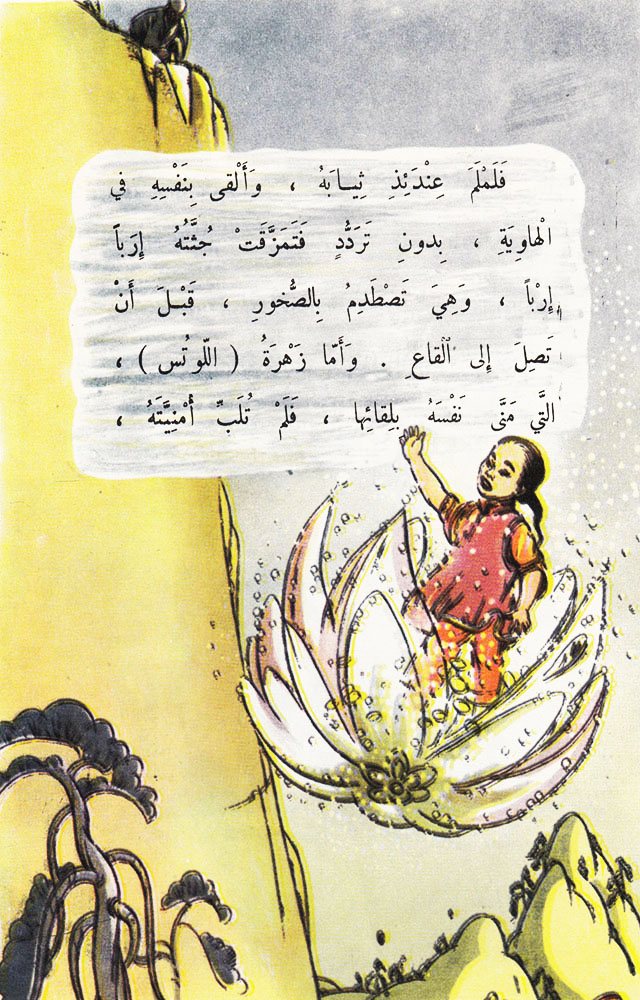 فَلَمْلَمَ عِنْدَئِذٍ ثِيــابَهُ ، وَأَلْقى بِنَفْسِهِ في
الْهاوِيَةِ ، بِدونِ تَرَدُّدٍ فَتَمَزَّقَتْ جُثَّتُهُ إِرَباً
إِرْباً ، وَهِيَ تَصْطَدِمُ بِالصُّخورِ ، قَبْـلَ أَنْ
تَصِلَ إِلى ٱلْقاعِ . وَأَمّا زَهْرَةُ ( اللّوتُس ) ،
الَّتي مَنَّى نَفْسَهُ بِلِقائِها ، فَلَمْ تُلَبِّ أُمْنِيَّتَهُ ،